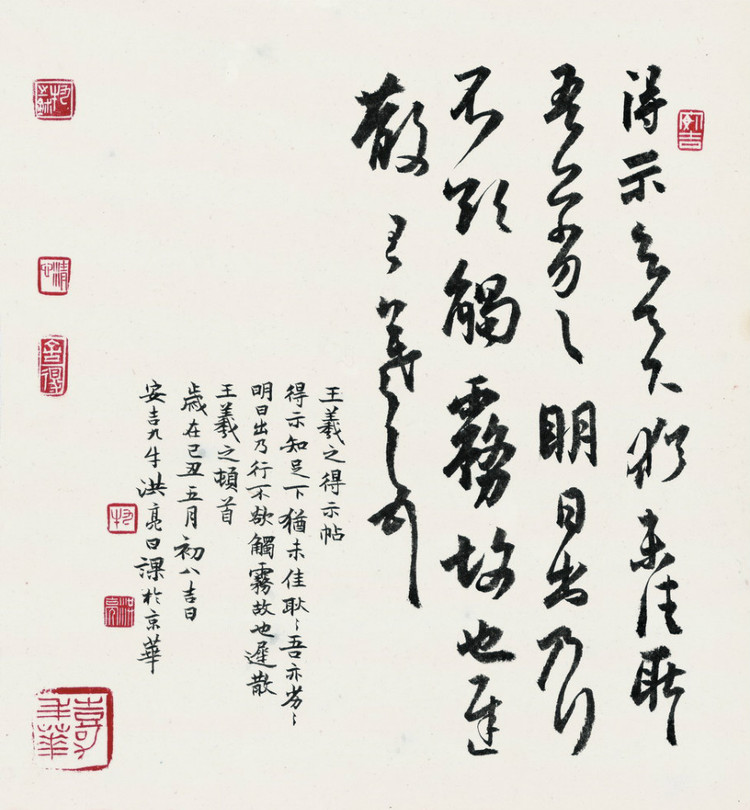 得示知足下猶未佳耿
吾亦劣〻明日出乃行
不欲觸霧故也遲
散王羲之頓首
王羲之得示帖
得示知足下猶未佳耿〻吾亦劣〻
明日出乃行不欲觸霧故也遲散
王羲之頓首
歲在己丑五月初八吉日
安吉九牛洪亮日課於京華
舍得
洪亮